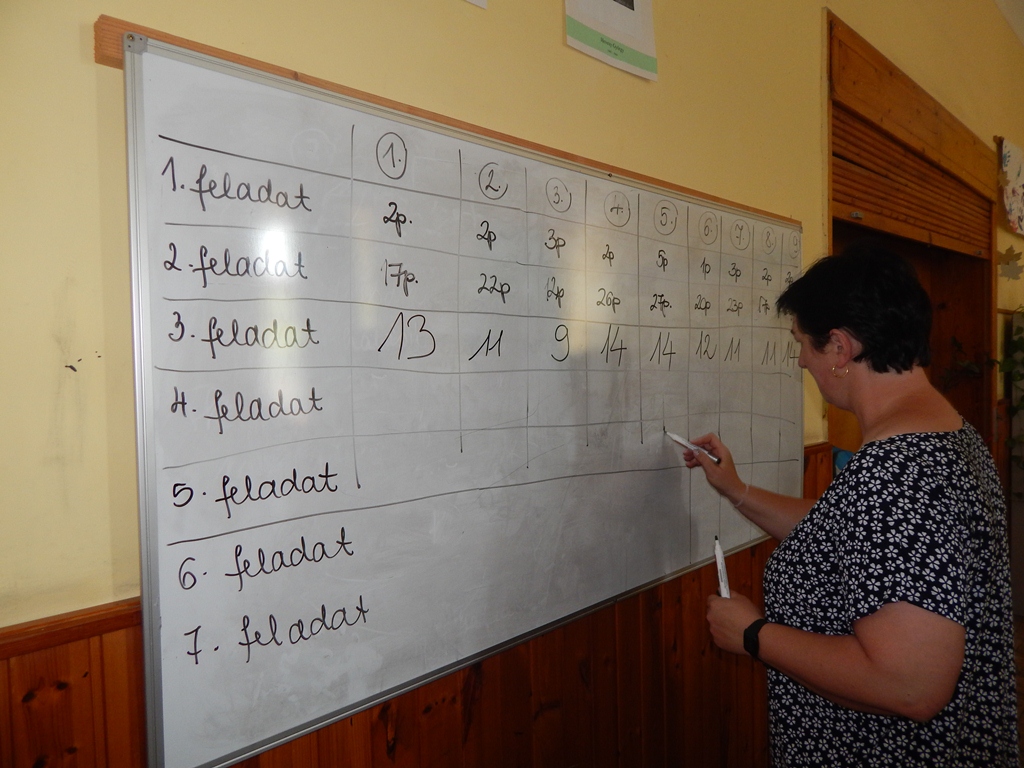 1. 2. 3. 4. 5. 6. 7. 8. 9
1. feladat 2p. 2p 3p 2p 5p 1p 3p 2p
2. feladat 17p. 22p 12p 26p 27p. 20p 23p
3. feladat 13 11 9 14 14 12 11 11 14
4. feladat
5. feladat
6. feladat
7. feladat